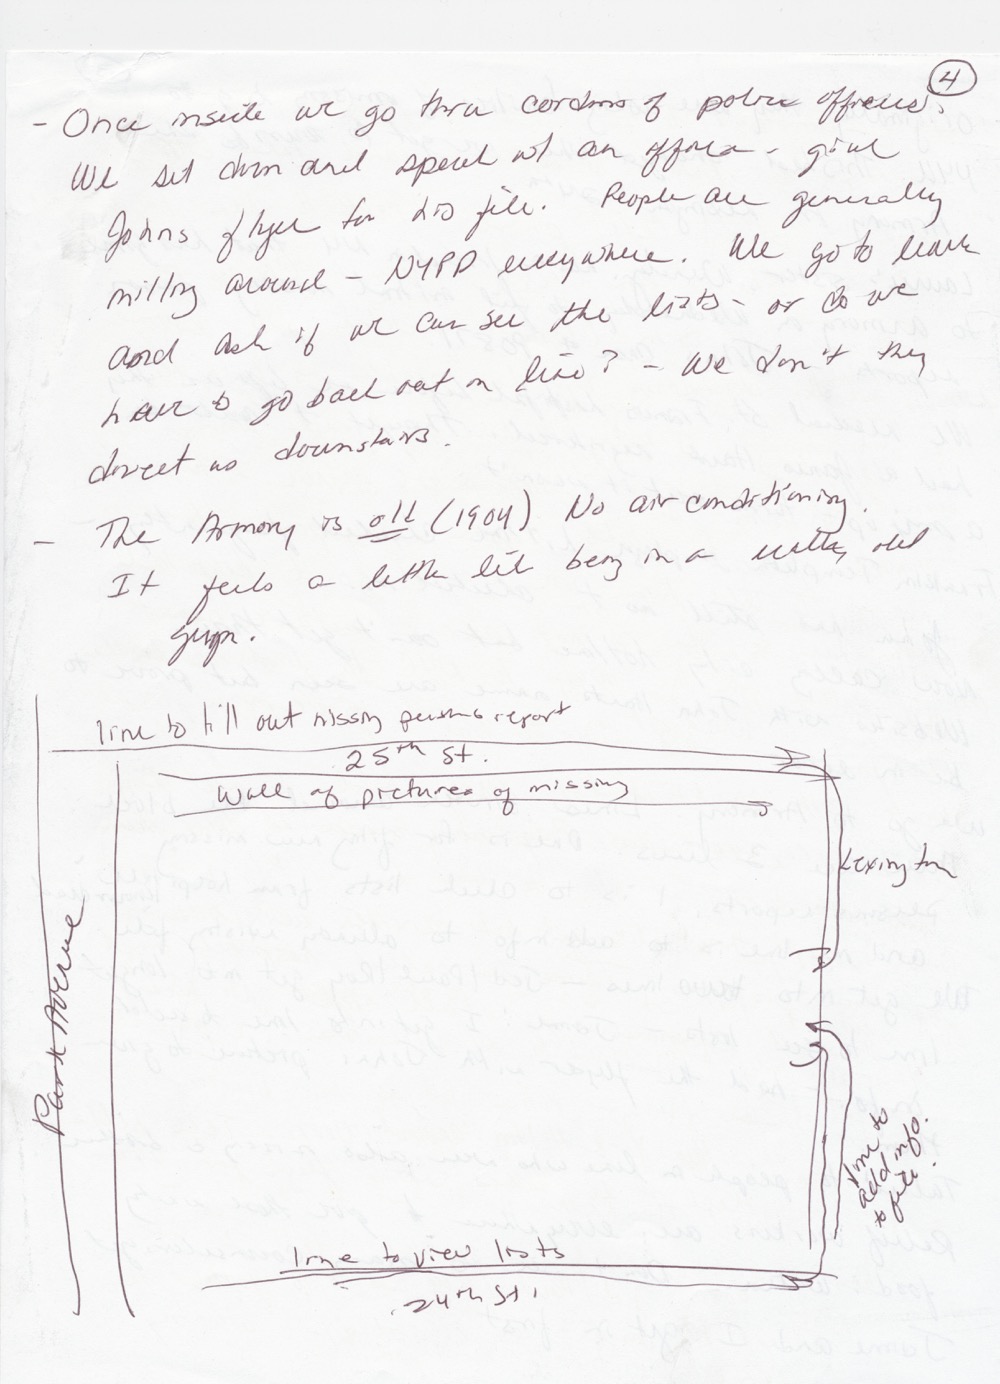 4
- Once inside we go thru cordons of police officers.
We sit down and speak w/ an officer - give
Johns flyer for his file. People are generally
milling around - NYPD everywhere. We go to leave
and ask if we can see the lists - or do we
have to go back out on line? - We don't they
direct us downstairs.
- The Armory is old (1904) No air conditioning.
It feels a little like being in a really old
gym.
line to fill out missing persons report
25th St.
Wall of pictures of missing
Lexington
Park Avenue
line to
add info.
to file.
line to view lists
24th St.